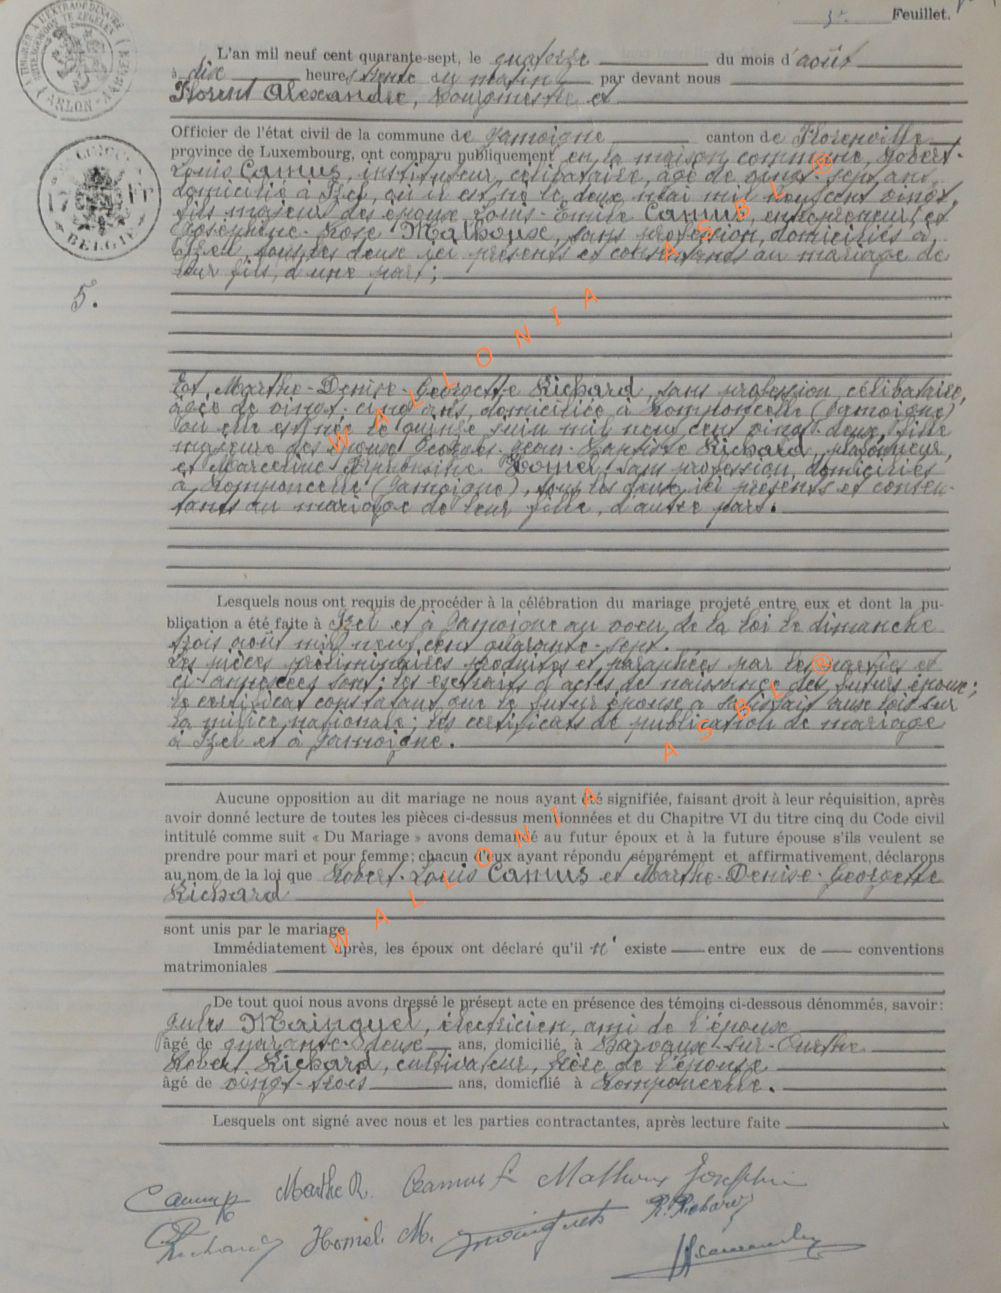 3e Feuillet.
L'an mil neuf cent quarante-sept, le quatorze du mois d'août
à dix heures trente du matin par devant nous
Florent Alexandre, Bourgmestre et
Officier de l'état civil de la commune de Jamoigne canton de Florenville
province de Luxembourg, ont comparu publiquement en la maison commune, Robert-
Louis Camus, instituteur, célibataire, âgé de vingt-sept ans,
domicilié à Izel, où il est né le deux mai mil neuf cent vingt,
fils majeur des époux Louis-Emile Camus, entrepreneur, et
Joséphine-Rose Malhoux, sans profession, domiciliés à
Izel, tous les deux ici présents et consentants au mariage de
leur fils, d'une part;
5.
Et, Marthe-Denise-Georgette Richard, sans profession, célibataire,
âgée de vingt-cinq ans, domiciliée à Romponcelle (Jamoigne)
où elle est née le quinze juin mil neuf cent vingt-deux, fille
majeure des époux Georges-Jean-Baptiste Richard, plafonneur,
et Marcelline Homel, sans profession, domiciliés
à Romponcelle (Jamoigne), tous les deux ici présents et consen-
tants au mariage de leur fille, d'autre part.
Lesquels nous ont requis de procéder à la célébration du mariage projeté entre eux et dont la pu-
blication a été faite à Izel et à Jamoigne au voeu de la loi le dimanche
trois août mil neuf cent quarante-sept.
Les pièces préliminaires produites et paraphées par les parties et
ci-annexées sont; les extraits d'actes de naissance des futurs époux;
le certificat constatant que le futur époux a satisfait aux lois sur
la milice nationale; les certificats de publication de mariage
à Izel et à Jamoigne.
Aucune opposition au dit mariage ne nous ayant été signifiée, faisant droit à leur réquisition, après
avoir donné lecture de toutes les pièces ci-dessus mentionnées et du Chapitre VI du titre cinq du Code civil
intitulé comme suit « Du Mariage » avons demandé au futur époux et à la future épouse s'ils veulent se
prendre pour mari et pour femme; chacun d'eux ayant répondu séparément et affirmativement, déclarons
au nom de la loi que Robert-Louis Camus et Marthe-Denise-Georgette
Richard
sont unis par le mariage
Immédiatement après, les époux ont déclaré qu'il n'existe entre eux de conventions
matrimoniales
De tout quoi nous avons dressé le présent acte en présence des témoins ci-dessous dénommés, savoir:
Jules Mainguet, électricien, ami de l'époux
âgé de quarante-deux ans, domicilié à Barvaux-sur-Ourthe
Robert Richard, cultivateur, frère de l'épouse
âgé de vingt-trois ans, domicilié à Romponcelle.
Lesquels ont signé avec nous et les parties contractantes, après lecture faite
Camus Marthe R. Camus L. Malhoux Joséphine
Richard Homel M. Mainguet R. Richard
WALLONIA ASBL @
WALLONIA ASBL @
ARLON
17 Fr
BELGIË